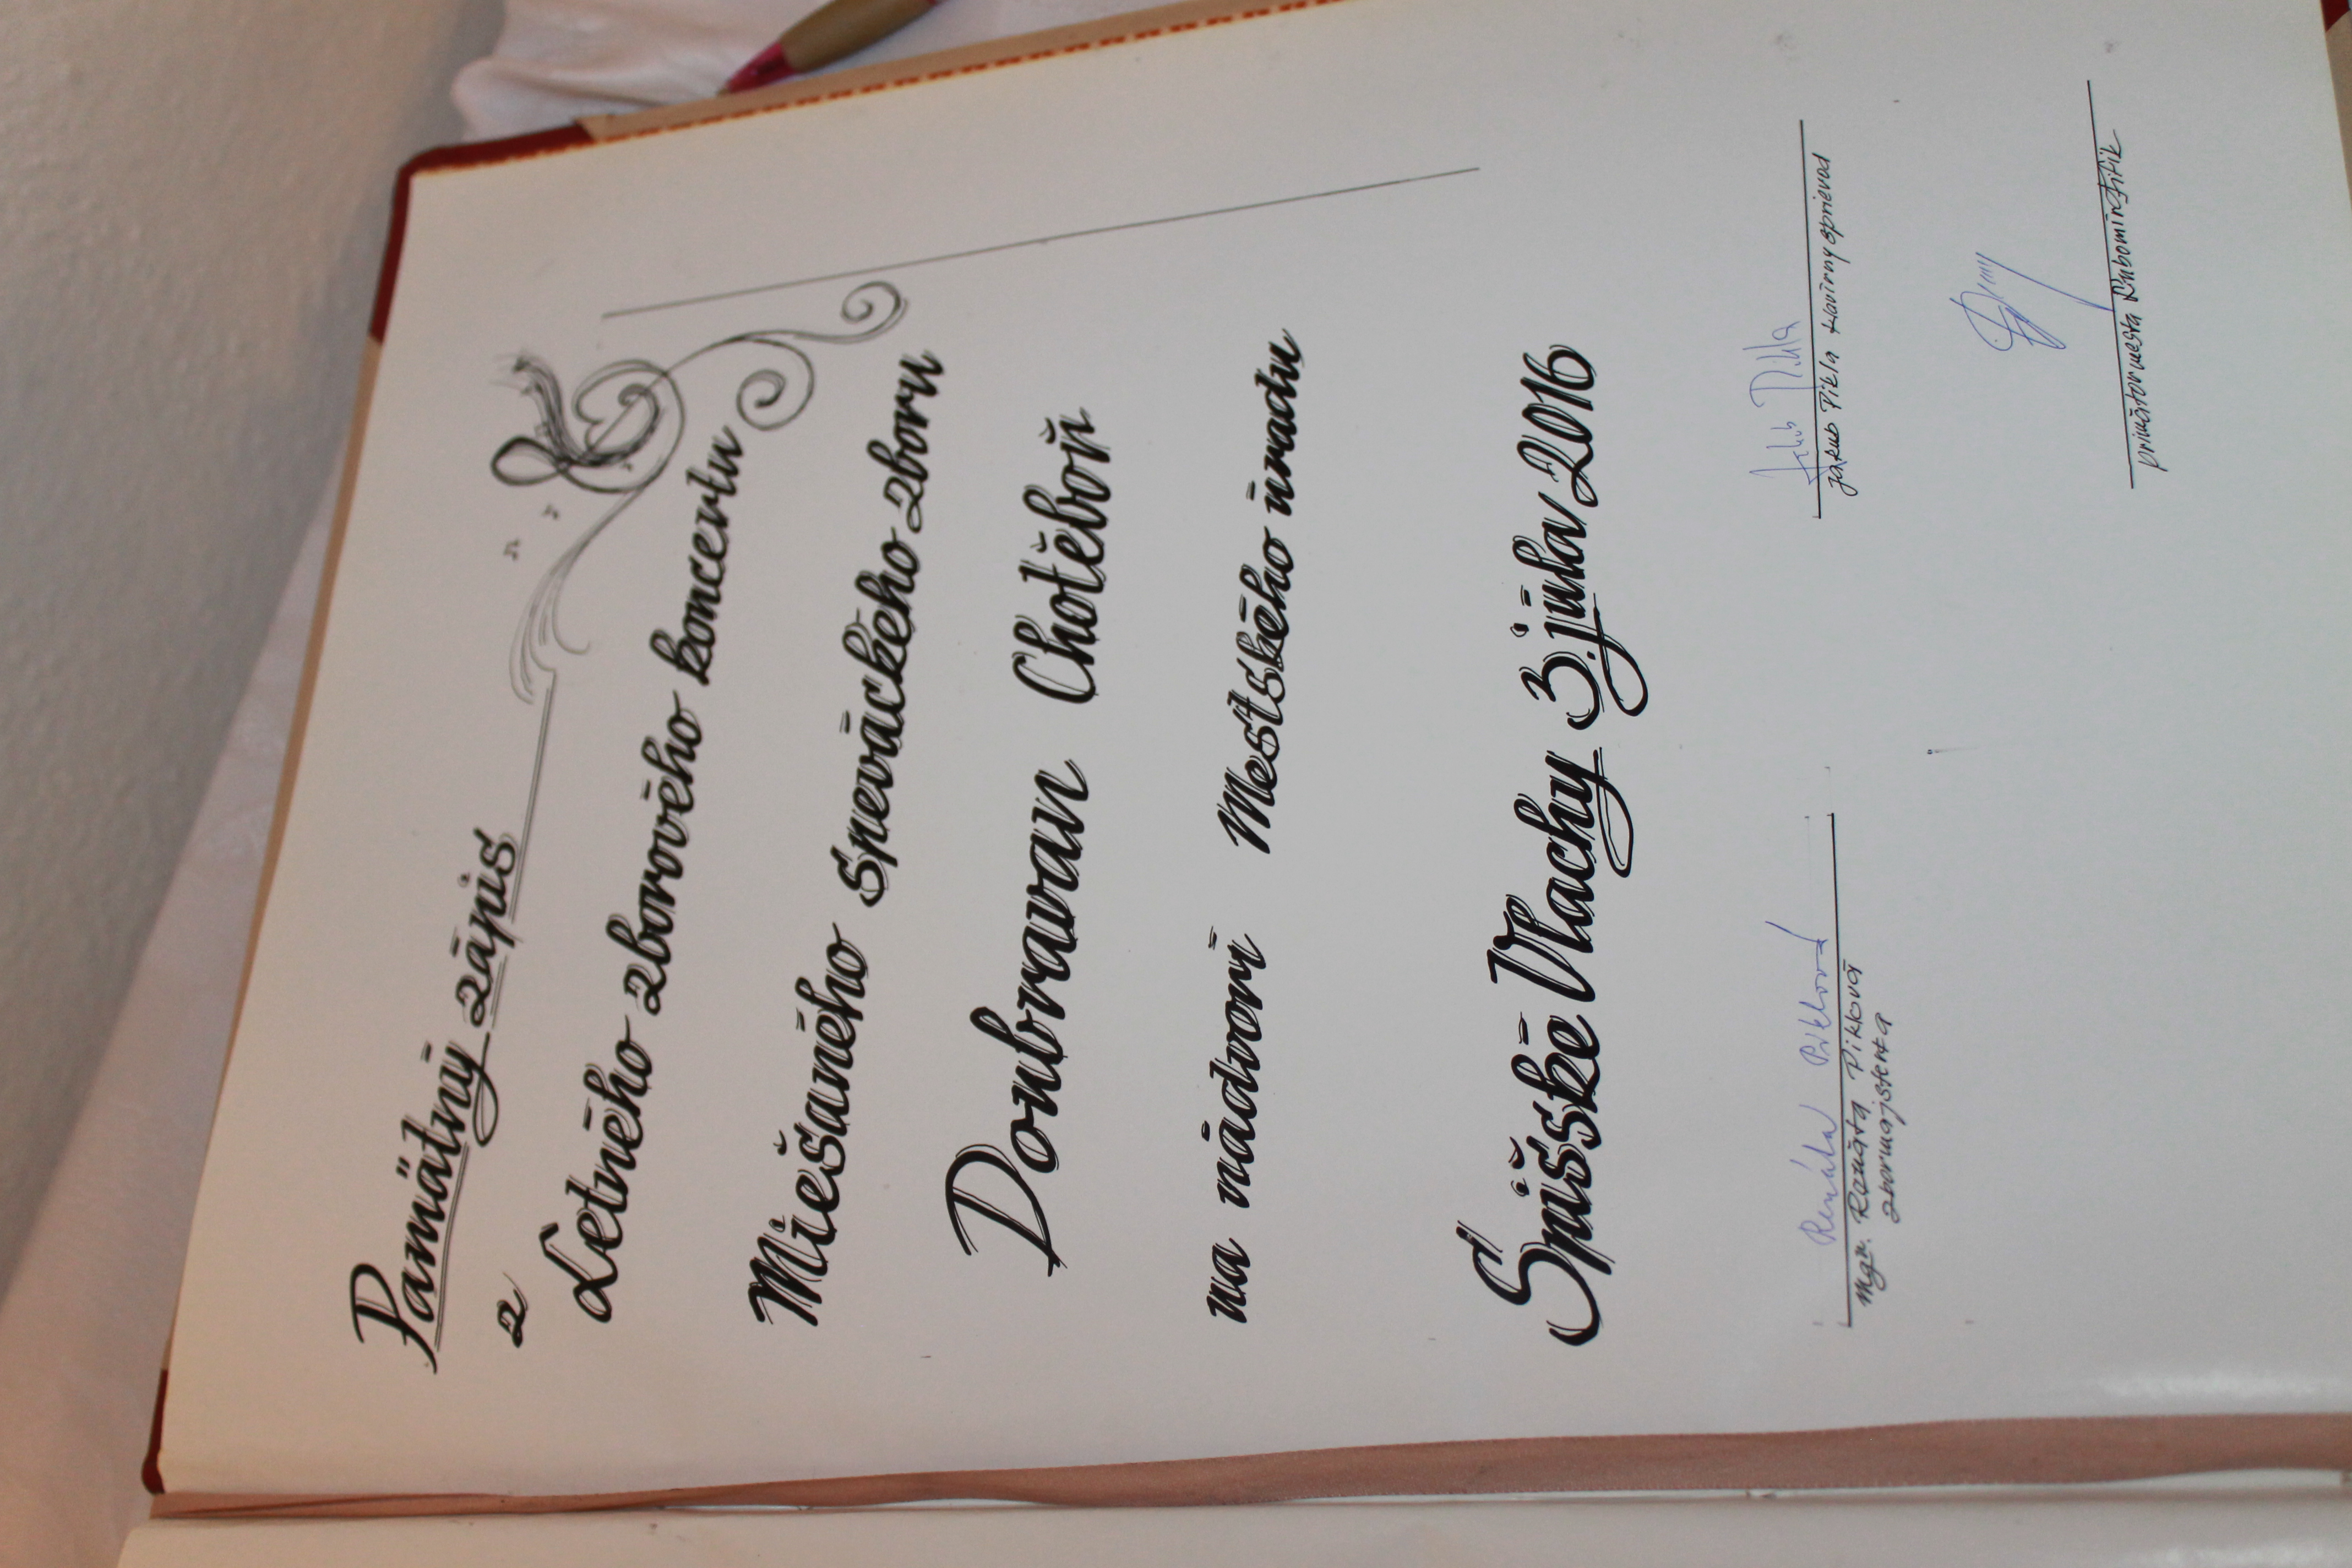 Pamätný zápis
z
Letného zborového koncertu
Miešaného speváckého zboru
Doubravan Chotěboň
na nádvorí Mestského úradu
Spišské Vlachy 3. júna 2016
Renáta Piklová
Mgr. Renáta Piklová
zbormajsterka
Jakub Pikla
Jakub Pikla klavírny sprievod
primátor mesta Ľubomír Fifik